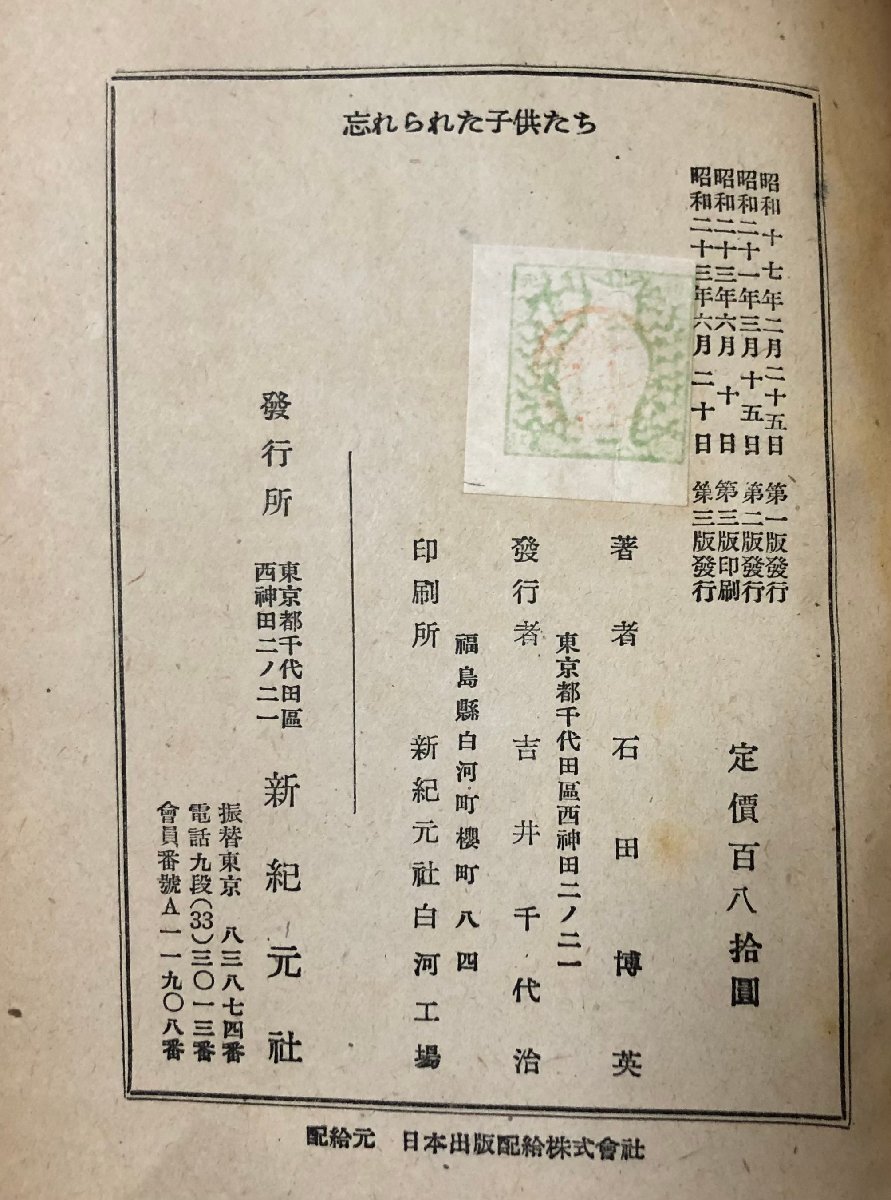 忘れられた子供たち
昭和十七年二月二十五日　第一版發行
昭和二十一年三月十五日　第二版發行
昭和二十三年六月十日　第三版印刷
昭和二十三年六月二十日　第三版發行
定價百八拾圓
著者　石田博英
東京都千代田區西神田二ノ二一
發行者　吉井千代治
福島縣白河町櫻町八四
印刷所　新紀元社白河工場
發行所　東京都千代田區
西神田二ノ二一　新紀元社
振替東京　八三八七四番
電話九段(33)三〇一三番
會員番號A一一九〇八番
配給元　日本出版配給株式會社